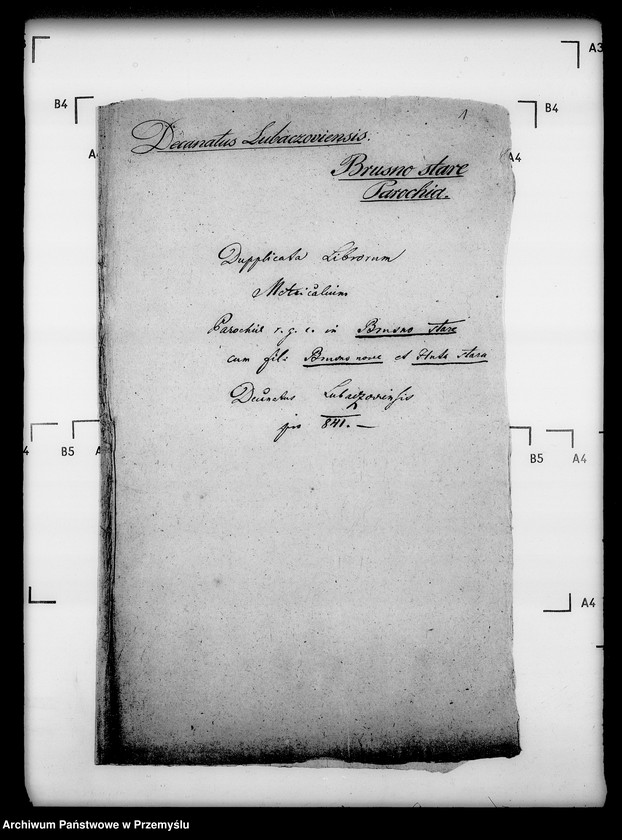 1
Decanatus Lubaczoviensis.
Brusno stare
Parochia.
Dupplicata Librorum
Metricalium
Parochiæ r. g. c. in Brusno stare
cum fil: Brusno nowe et Huta stara
Decanatus Lubaczoviensis
pro 841. —
A3
B4
B4
A4
B5
B5
A4
A4
Archiwum Państwowe w Przemyślu